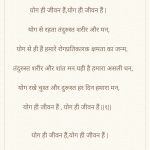 योग ही जीवन है,योग ही जीवन है।
योग से रहता तंदुरुस्त शरीर और मन,
योग से ही है हमारे रोगप्रतिकारक क्षमता का जन्म,
तंदुरुस्त शरीर और शांत मन यही है हमारा असली धन,
योग रखे चुस्त और दुरुस्त हर दिन हमारा मन,
योग ही जीवन है , योग ही जीवन है।(१)।
योग ही जीवन है,योग ही जीवन है।